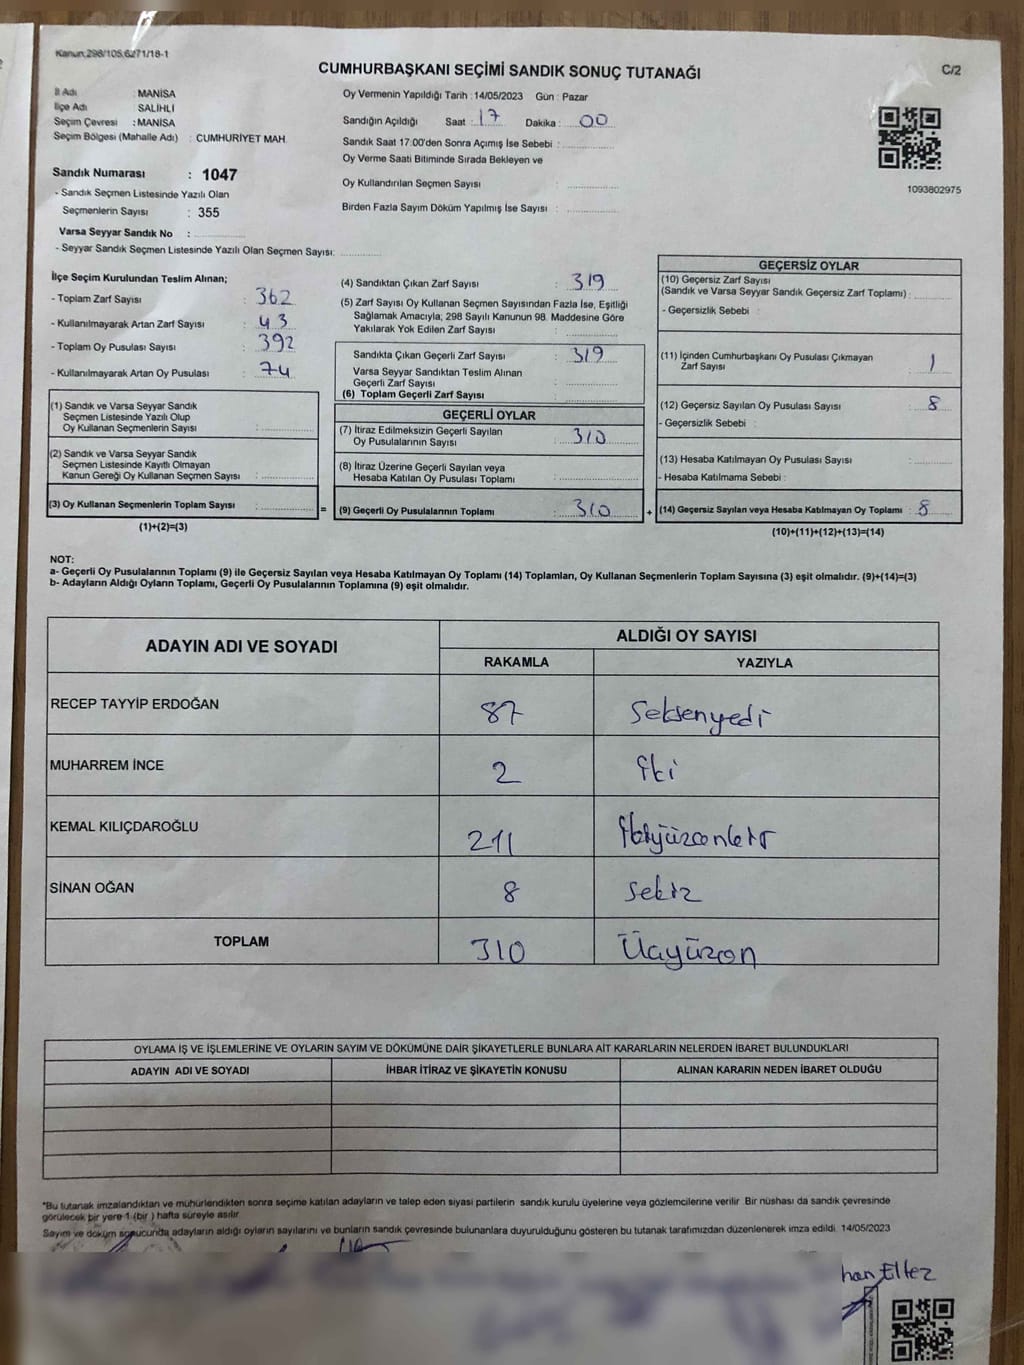 Kanun:298/105,6271/18-1
CUMHURBAŞKANI SEÇİMİ SANDIK SONUÇ TUTANAĞI
C/2
İl Adı : MANİSA
İlçe Adı SALİHLİ
Seçim Çevresi : MANİSA
Seçim Bölgesi (Mahalle Adı) : CUMHURİYET MAH.
Sandık Numarası : 1047
- Sandık Seçmen Listesinde Yazılı Olan
Seçmenlerin Sayısı : 355
Varsa Seyyar Sandık No :
- Seyyar Sandık Seçmen Listesinde Yazılı Olan Seçmen Sayısı:
Oy Vermenin Yapıldığı Tarih : 14/05/2023 Gün : Pazar
Sandığın Açıldığı Saat : 17 Dakika : 00
Sandık Saat 17:00'den Sonra Açımış İse Sebebi :
Oy Verme Saati Bitiminde Sırada Bekleyen ve
Oy Kullandırılan Seçmen Sayısı :
Birden Fazla Sayım Döküm Yapılmış İse Sayısı :
1093802975
İlçe Seçim Kurulundan Teslim Alınan;
- Toplam Zarf Sayısı : 362
- Kullanılmayarak Artan Zarf Sayısı : 43
- Toplam Oy Pusulası Sayısı : 392
- Kullanılmayarak Artan Oy Pusulası : 74
(1) Sandık ve Varsa Seyyar Sandık
Seçmen Listesinde Yazılı Olup
Oy Kullanan Seçmenlerin Sayısı :
(2) Sandık ve Varsa Seyyar Sandık
Seçmen Listesinde Kayıtlı Olmayan
Kanun Gereği Oy Kullanan Seçmen Sayısı :
(3) Oy Kullanan Seçmenlerin Toplam Sayısı : =
(1)+(2)=(3)
(4) Sandıktan Çıkan Zarf Sayısı : 319
(5) Zarf Sayısı Oy Kullanan Seçmen Sayısından Fazla İse, Eşitliği
Sağlamak Amacıyla; 298 Sayılı Kanunun 98. Maddesine Göre
Yakılarak Yok Edilen Zarf Sayısı :
Sandıkta Çıkan Geçerli Zarf Sayısı : 319
Varsa Seyyar Sandıktan Teslim Alınan
Geçerli Zarf Sayısı :
(6) Toplam Geçerli Zarf Sayısı :
GEÇERLİ OYLAR
(7) İtiraz Edilmeksizin Geçerli Sayılan
Oy Pusulalarının Sayısı : 310
(8) İtiraz Üzerine Geçerli Sayılan veya
Hesaba Katılan Oy Pusulası Toplamı :
(9) Geçerli Oy Pusulalarının Toplamı : 310 +
GEÇERSİZ OYLAR
(10) Geçersiz Zarf Sayısı
(Sandık ve Varsa Seyyar Sandık Geçersiz Zarf Toplamı) :
- Geçersizlik Sebebi :
(11) İçinden Cumhurbaşkanı Oy Pusulası Çıkmayan
Zarf Sayısı : 1
(12) Geçersiz Sayılan Oy Pusulası Sayısı : 8
- Geçersizlik Sebebi :
(13) Hesaba Katılmayan Oy Pusulası Sayısı :
- Hesaba Katılmama Sebebi :
(14) Geçersiz Sayılan veya Hesaba Katılmayan Oy Toplamı : 8
(10)+(11)+(12)+(13)=(14)
NOT:
a- Geçerli Oy Pusulalarının Toplamı (9) ile Geçersiz Sayılan veya Hesaba Katılmayan Oy Toplamı (14) Toplamları, Oy Kullanan Seçmenlerin Toplam Sayısına (3) eşit olmalıdır. (9)+(14)=(3)
b- Adayların Aldığı Oyların Toplamı, Geçerli Oy Pusulalarının Toplamına (9) eşit olmalıdır.
ADAYIN ADI VE SOYADI ALDIĞI OY SAYISI
RAKAMLA YAZIYLA
RECEP TAYYİP ERDOĞAN 87 Seksenyedi
MUHARREM İNCE 2 İki
KEMAL KILIÇDAROĞLU 211 İkiyüzonbir
SİNAN OĞAN 8 Sekiz
TOPLAM 310 Üçyüzon
OYLAMA İŞ VE İŞLEMLERİNE VE OYLARIN SAYIM VE DÖKÜMÜNE DAİR ŞİKAYETLERLE BUNLARA AİT KARARLARIN NELERDEN İBARET BULUNDUKLARI
ADAYIN ADI VE SOYADI İHBAR İTİRAZ VE ŞİKAYETİN KONUSU ALINAN KARARIN NEDEN İBARET OLDUĞU
*Bu tutanak imzalandıktan ve mühürlendikten sonra seçime katılan adayların ve talep eden siyasi partilerin sandık kurulu üyelerine veya gözlemcilerine verilir. Bir nüshası da sandık çevresinde
görülecek bir yere 1 (bir ) hafta süreyle asılır.
Sayım ve döküm sonucunda adayların aldığı oyların sayılarını ve bunların sandık çevresinde bulunanlara duyurulduğunu gösteren bu tutanak tarafımızdan düzenlenerek imza edildi. 14/05/2023